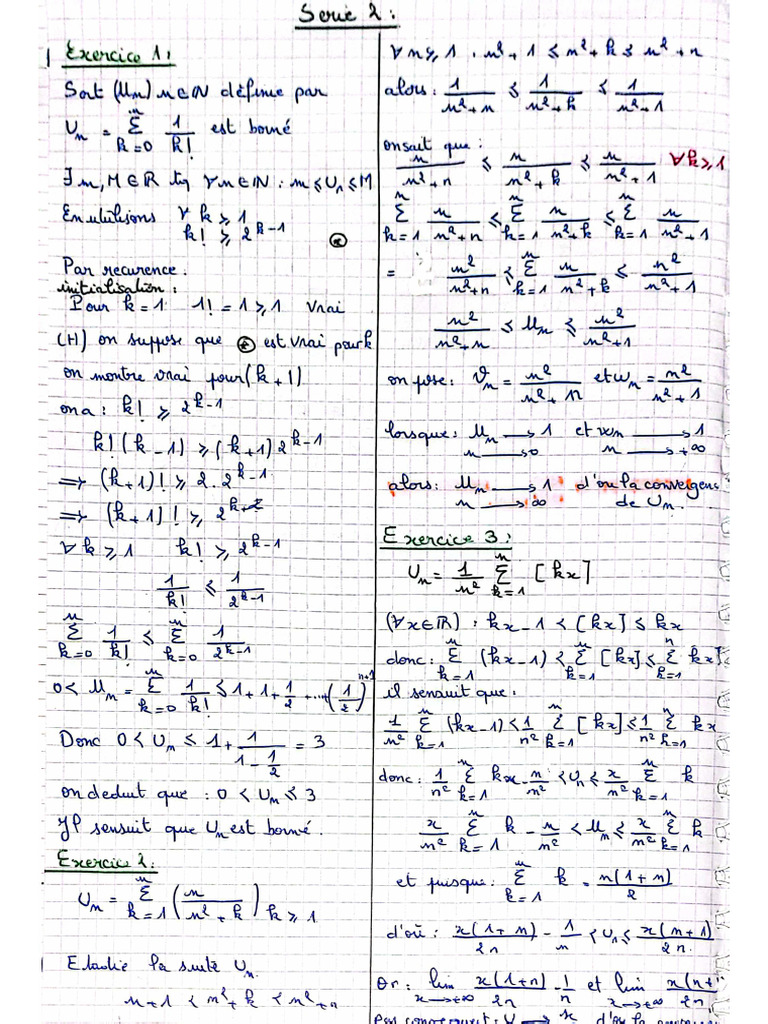 Serie 2 :
Exercice 1 :
Soit (Un) n∈N définie par
Un = Σ_{k=0}^{n} 1/k! est borné
∃ m, M ∈ R tq ∀n∈N : m ≤ Un ≤ M
En utilisons ∀ k ≥ 1
k! ≥ 2^{k-1} (*)
Par recurence :
initialisation :
Pour k = 1 1! = 1 ≥ 1 Vrai
(H) on suppose que (*) est vrai pour k
on montre vrai pour (k+1)
on a : k! ≥ 2^{k-1}
k! (k-1) ≥ (k+1) 2^{k-1}
⟹ (k+1)! ≥ 2·2^{k-1}
⟹ (k+1)! ≥
∀ k ≥ 1 k! ≥ 2^{k-1}
1/k! ≤ 1/2^{k-1}
Σ_{k=0}^{n} 1/k! ≤ Σ_{k=0}^{n} 1/2^{k-1}
0 < Un = Σ_{k=0}^{n} 1/k! ≤ 1 + 1 + 1/2 ... + (1/2)^{n+1}
Donc 0 < Un ≤ 1 + 1/(1 - 1/2) = 3
on deduit que : 0 < Un ≤ 3
Il sensuit que Un est borné.
Exercice 2 :
Un = Σ_{k=1}^{n} (n/(n²+k)) k ≥ 1
Etudie la suite Un
n+1 < n²+k < n²+n
∀ n ≥ 1 . n²+1 ≤ n²+k ≤ n²+n
alors : 1/(n²+n) ≤ 1/(n²+k) ≤ 1/(n²+1)
on sait que :
n/(n²+n) ≤ n/(n²+k) ≤ n/(n²+1) ∀k≥1
Σ_{k=1}^{n} n/(n²+n) ≤ Σ_{k=1}^{n} n/(n²+k) ≤ Σ_{k=1}^{n} n/(n²+1)
= n²/(n²+n) ≤ Σ_{k=1}^{n} n/(n²+k) ≤ n²/(n²+1)
n²/(n²+n) ≤ Un ≤ n²/(n²+1)
on pose : Vn = n²/(n²+n) et wn = n²/(n²+1)
lorsque : Un ⟶ 1 et wn ⟶ 1
n ⟶ 0 n ⟶ +∞
alors : Un ⟶ 1 d'ou la convergens
n ⟶ ∞ de Un.
Exercice 3 :
Un = 1/n² Σ_{k=1}^{n} [kx]
(∀x∈R) : kx-1 < [kx] ≤ kx
donc : Σ_{k=1}^{n} (kx-1) < Σ_{k=1}^{n} [kx] ≤ Σ_{k=1}^{n} kx
il sensuit que :
1/n² Σ_{k=1}^{n} (kx-1) < 1/n² Σ_{k=1}^{n} [kx] ≤ 1/n² Σ_{k=1}^{n} kx
donc : 1/n² Σ_{k=1}^{n} kx - n/n² < Un ≤ x/n² Σ_{k=1}^{n} k
x/n² Σ_{k=1}^{n} k - n/n² < Un ≤ x/n² Σ_{k=1}^{n} k
et puisque : Σ_{k=1}^{n} k = n(1+n)/2
d'où : x(1+n)/2n - 1/n < Un ≤ x(n+1)/2n.
Or : lim_{x→+∞} x(1+n)/2n - 1/n et lim_{x→+∞} x(n+/2n